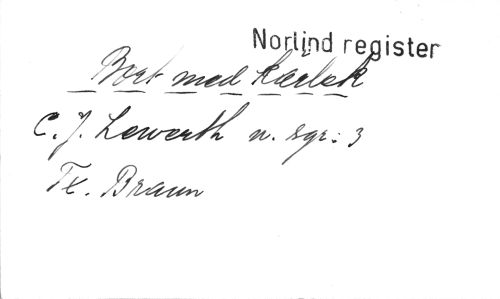 Norlind register
Bort med kärlek
C. J. Lewerth n. sgr: 3
Tx. Braun